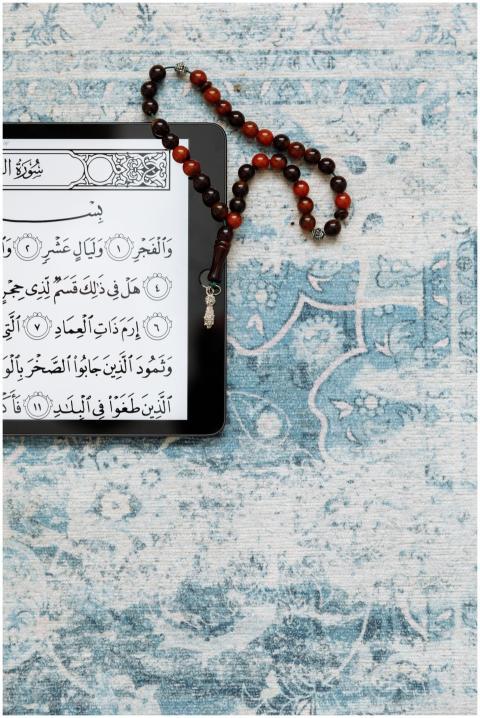 سُورَةُ
بِسْـ
وَالْفَجْرِ ١ وَلَيَالٍ عَشْرٍ ٢
هَلْ فِي ذَٰلِكَ قَسَمٌ لِّذِي حِجْرٍ
٤
٦ إِرَمَ ذَاتِ الْعِمَادِ ٧ الَّتِي
وَثَمُودَ الَّذِينَ جَابُوا الصَّخْرَ بِالْوَا
الَّذِينَ طَغَوْا فِي الْبِلَادِ ١١ فَأَكْ